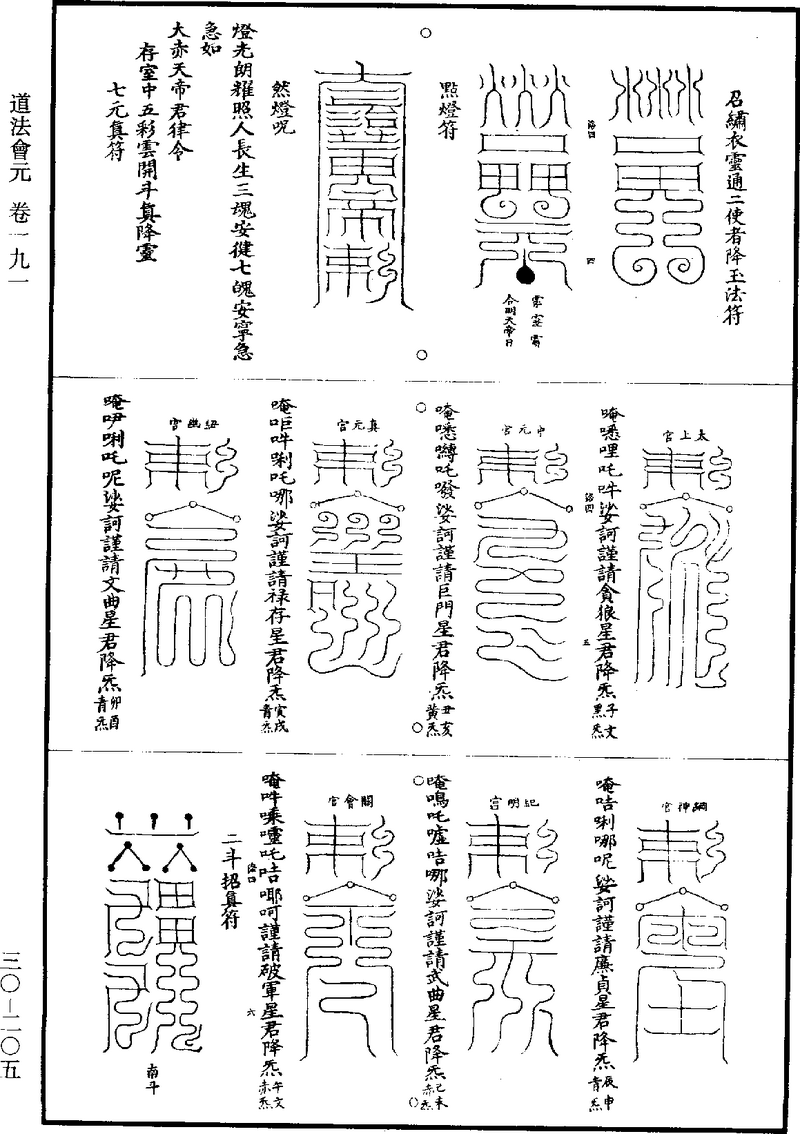 道法會元 卷一九一
三〇—二〇五
召繡衣靈通二使者降玉法符
合明天帝日
點燈符
然燈呪
燈光朗耀照人長生三魂安健七魄安寧急
急如
大赤天帝君律令
存室中五彩雲開斗真降靈
七元真符
太上宮
唵㘑哩吒吽娑訶謹請貪狼星君降炁子文黑炁
中元宮
唵㘑嚩吒發娑訶謹請巨門星君降炁丑亥黃炁
真元宮
唵㕵吽唎吒哪娑訶謹請祿存星君降炁寅戌青炁
紐幽宮
唵吚唎吒呢娑訶謹請文曲星君降炁卯酉青炁
綱神宮
唵咭唎哪呢娑訶謹請廉貞星君降炁辰申青炁
紀明宮
唵嗚吒噓咭哪娑訶謹請武曲星君降炁巳未赤炁
關會宮
唵吽乘𡅖吒咭耶呵謹請破軍星君降炁午文赤炁
二斗招真符
南斗